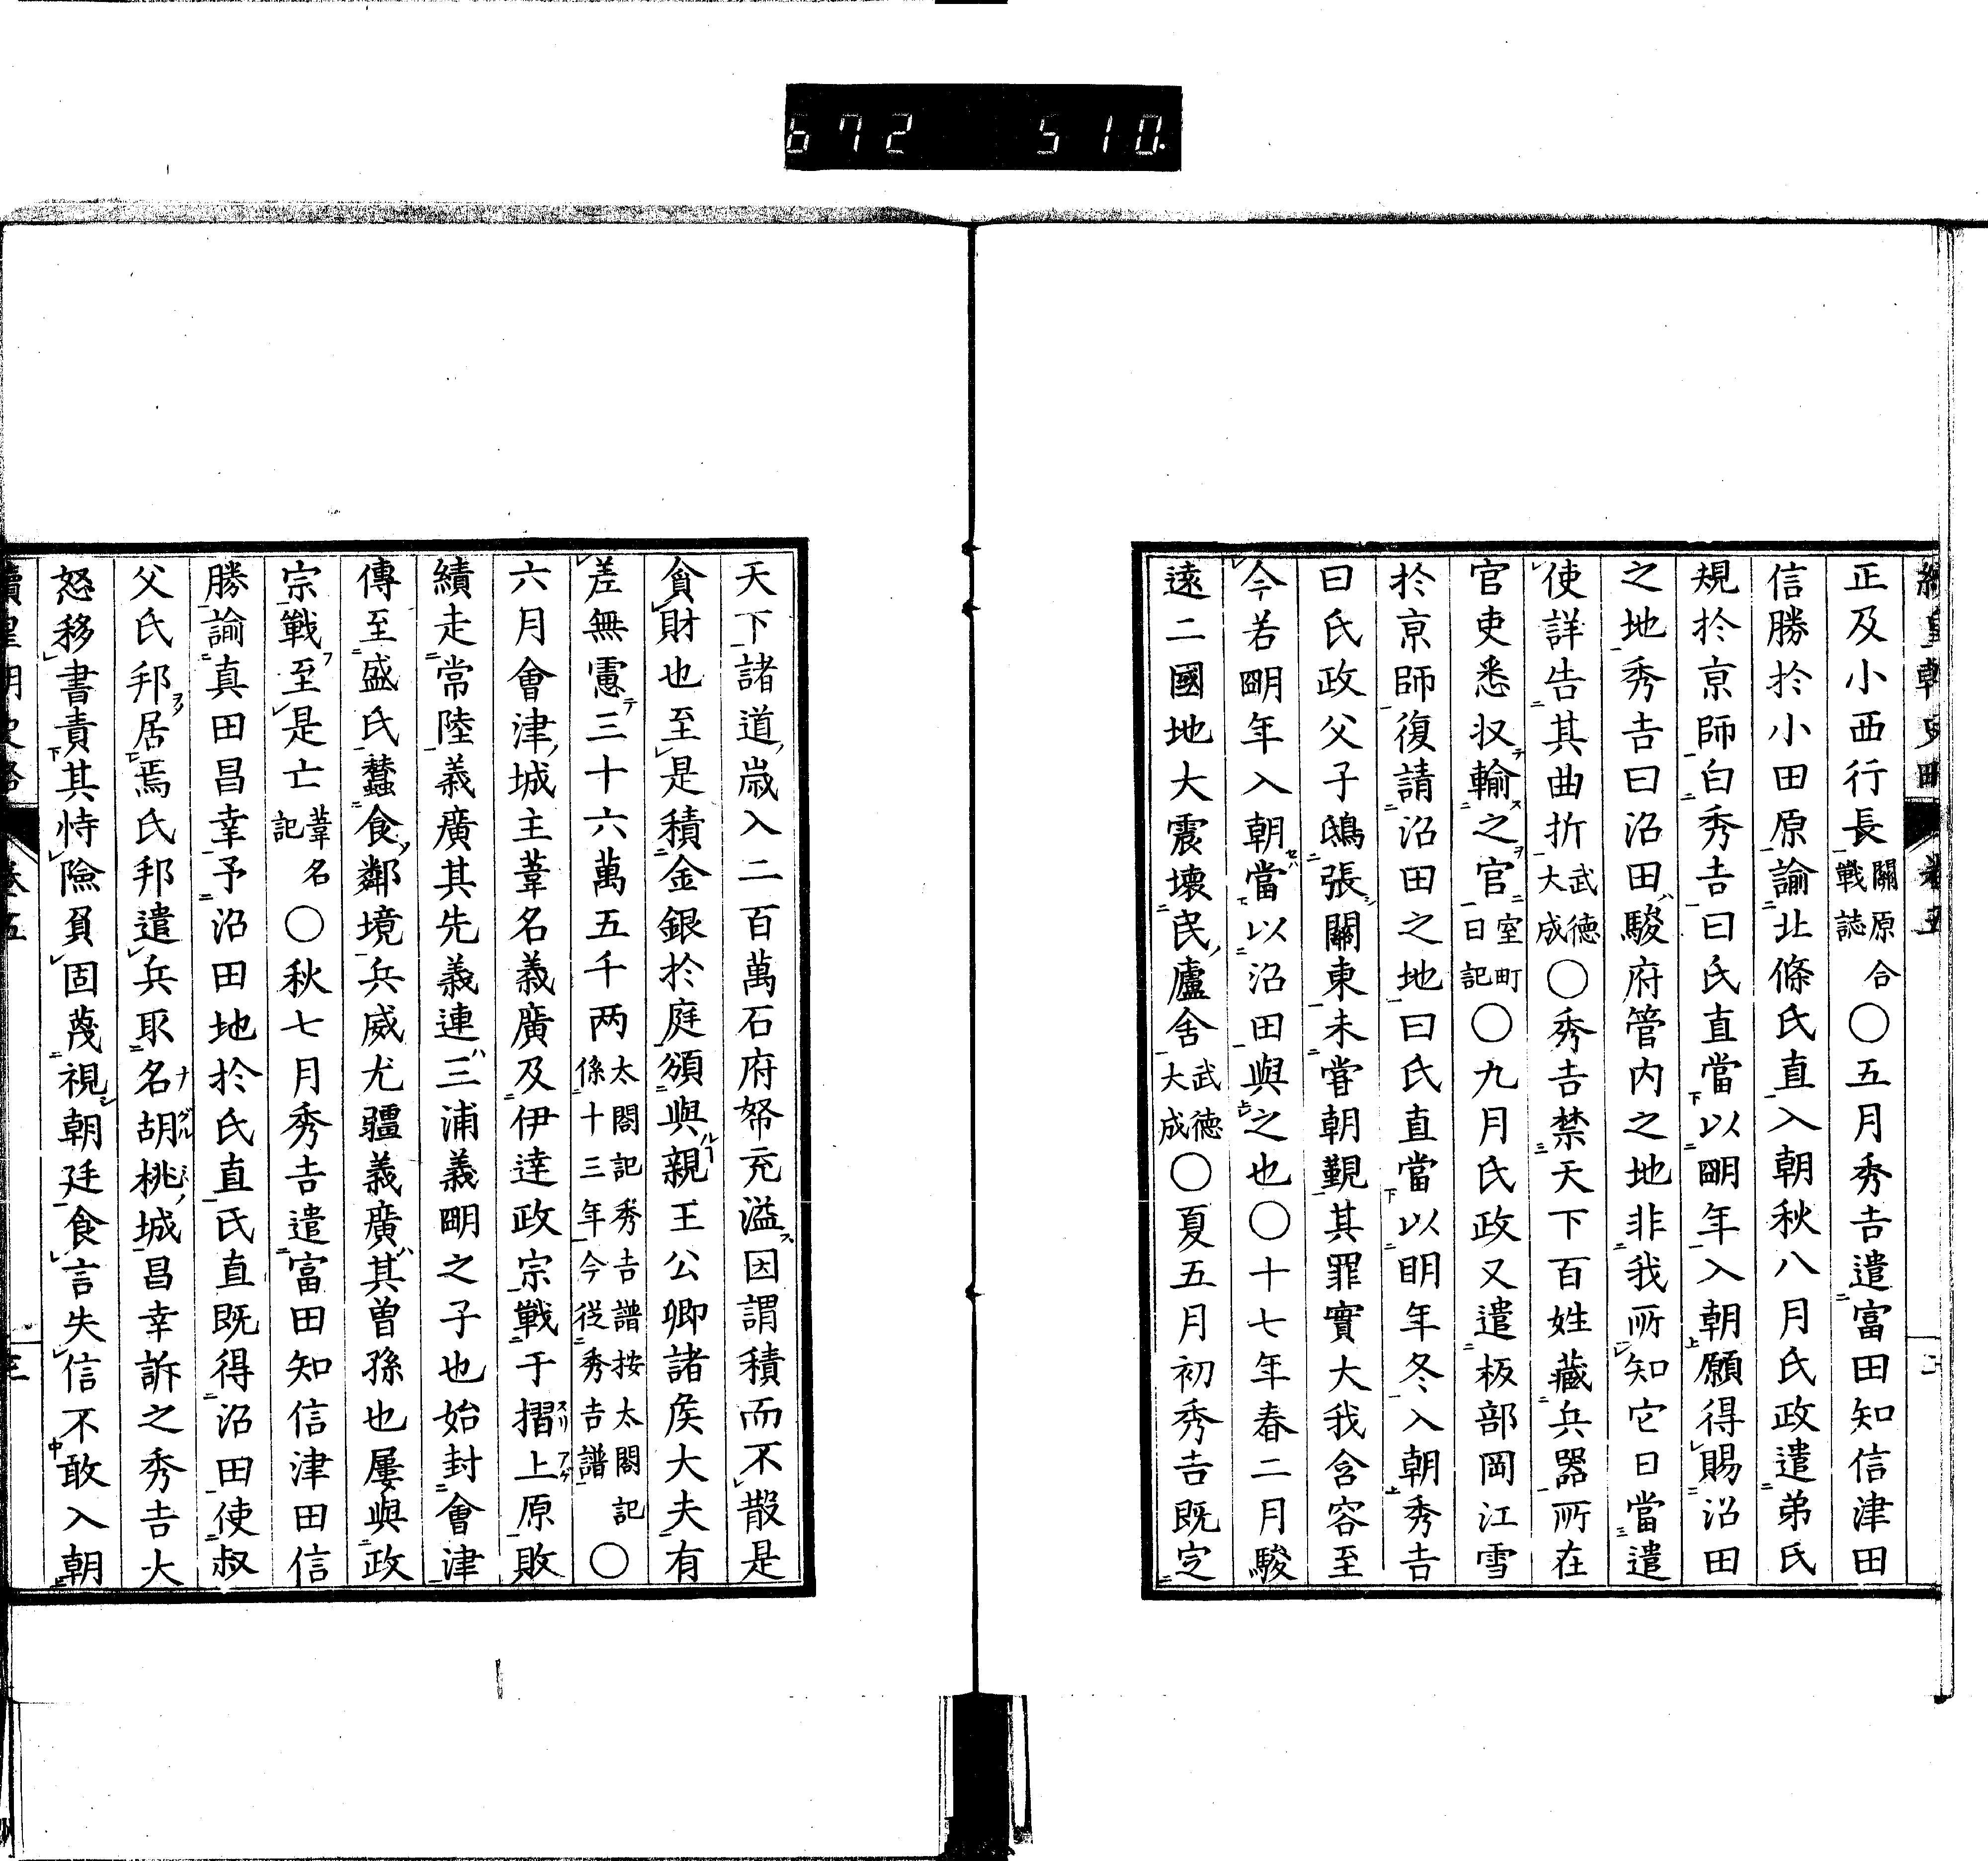 672 510.
正及小西行長關原合戰誌〇五月秀吉遣富田知信津田
信勝於小田原諭北條氏直入朝秋八月氏政遣弟氏
規於京師白秀吉曰氏直當以明年入朝願得賜沼田
之地秀吉曰沼田ハ駿府管內之地非我所知它日當遣
使詳告其曲折武德大成〇秀吉禁天下百姓藏兵器所在
官吏悉収テ輸ス之ヲ官室町日記〇九月氏政又遣板部岡江雪
於京師復請沼田之地曰氏直當以明年冬入朝秀吉
曰氏政父子鴟張シ關東未嘗朝覲其罪實大我含容至
今若明年入朝セハ當以沼田與之也〇十七年春二月駿
遠二國地大震壞民ノ廬舍武德大成〇夏五月初秀吉既定
天下諸道ノ歳入二百萬石府帑充溢ス因謂積而不散是
貪財也至是積金銀於庭頒與親王公卿諸侯大夫有
差無慮テ三十六萬五千两太閤記秀吉譜按太閤記係十三年今從秀吉譜〇
六月會津ノ城主葦名義廣及伊達政宗戰于摺上原敗
績走常陸義廣其先義連ハ三浦義明之子也始封會津
傳至盛氏蠶食ノ鄰境兵威尤疆義廣ハ其曾孫也屢與政
宗戰フ至是亡葦名記〇秋七月秀吉遣富田知信津田信
勝諭真田昌幸予沼田地於氏直氏直既得沼田使叔
父氏邦ヲ居焉氏邦遣兵取名胡桃ノ城昌幸訴之秀吉大
怒移書責其恃險負固蔑視シ朝廷食言失信不敢入朝